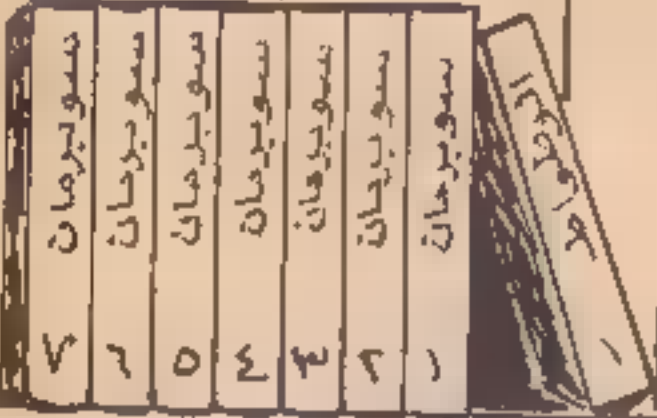 ١
سوبرمان ١
سوبرمان ٢
سوبرمان ٣
سوبرمان ٤
سوبرمان ٥
سوبرمان ٦
سوبرمان ٧